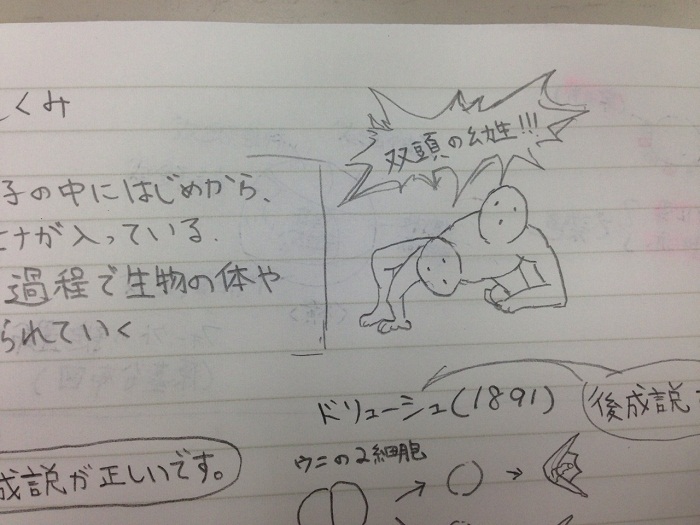 くみ
双頭の幼生!!!
子の中にはじめから、
ヒナが入っている.
過程で生物の体や
られていく
ドリューシュ(1891)
後成説
成説が正しいです。
ウニの2細胞